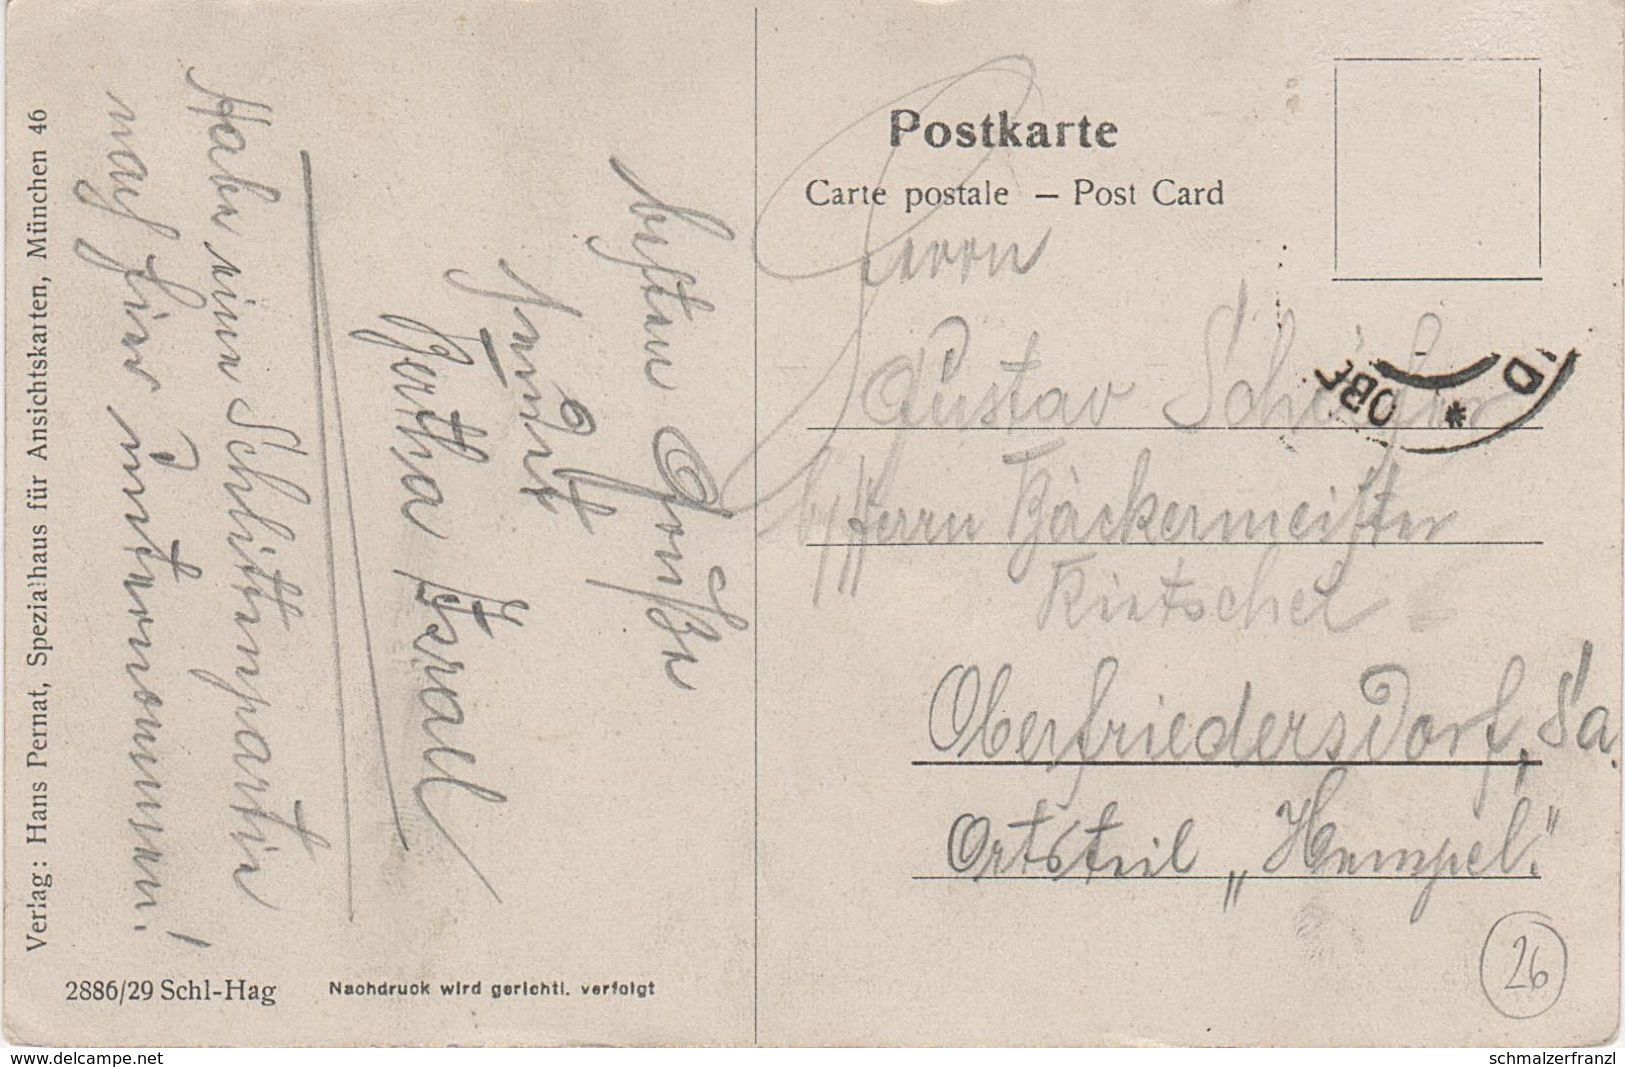 Postkarte
Carte postale — Post Card
Herrn
Gustav Schäfer
b/ Herrn Bäckermeister
Rietschel
Oberfriedersdorf, Sa.
Ortsteil „Hempel."
26
OBE
* D
Habe eine Schlittenpartie
nach hier unternommen!
besten Grüße
sendet
Bertha Israel
Verlag: Hans Pernat, Spezialhaus für Ansichtskarten, München 46
2886/29 Schl-Hag
Nachdruck wird gerichtl. verfolgt
www.delcampe.net
schmalzerfranzl